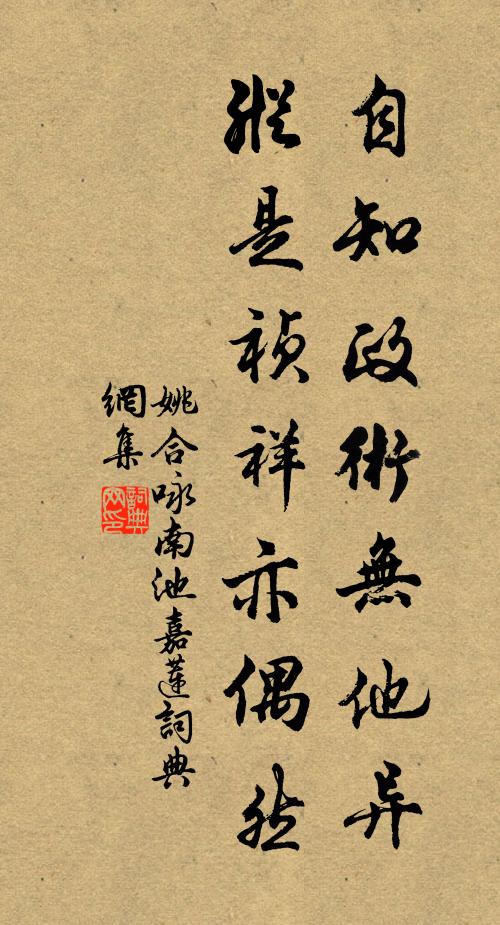 自知政術無他异
縱是禎祥亦偶然
姚合咏南池嘉蓮詞典
網集
詞典
网印